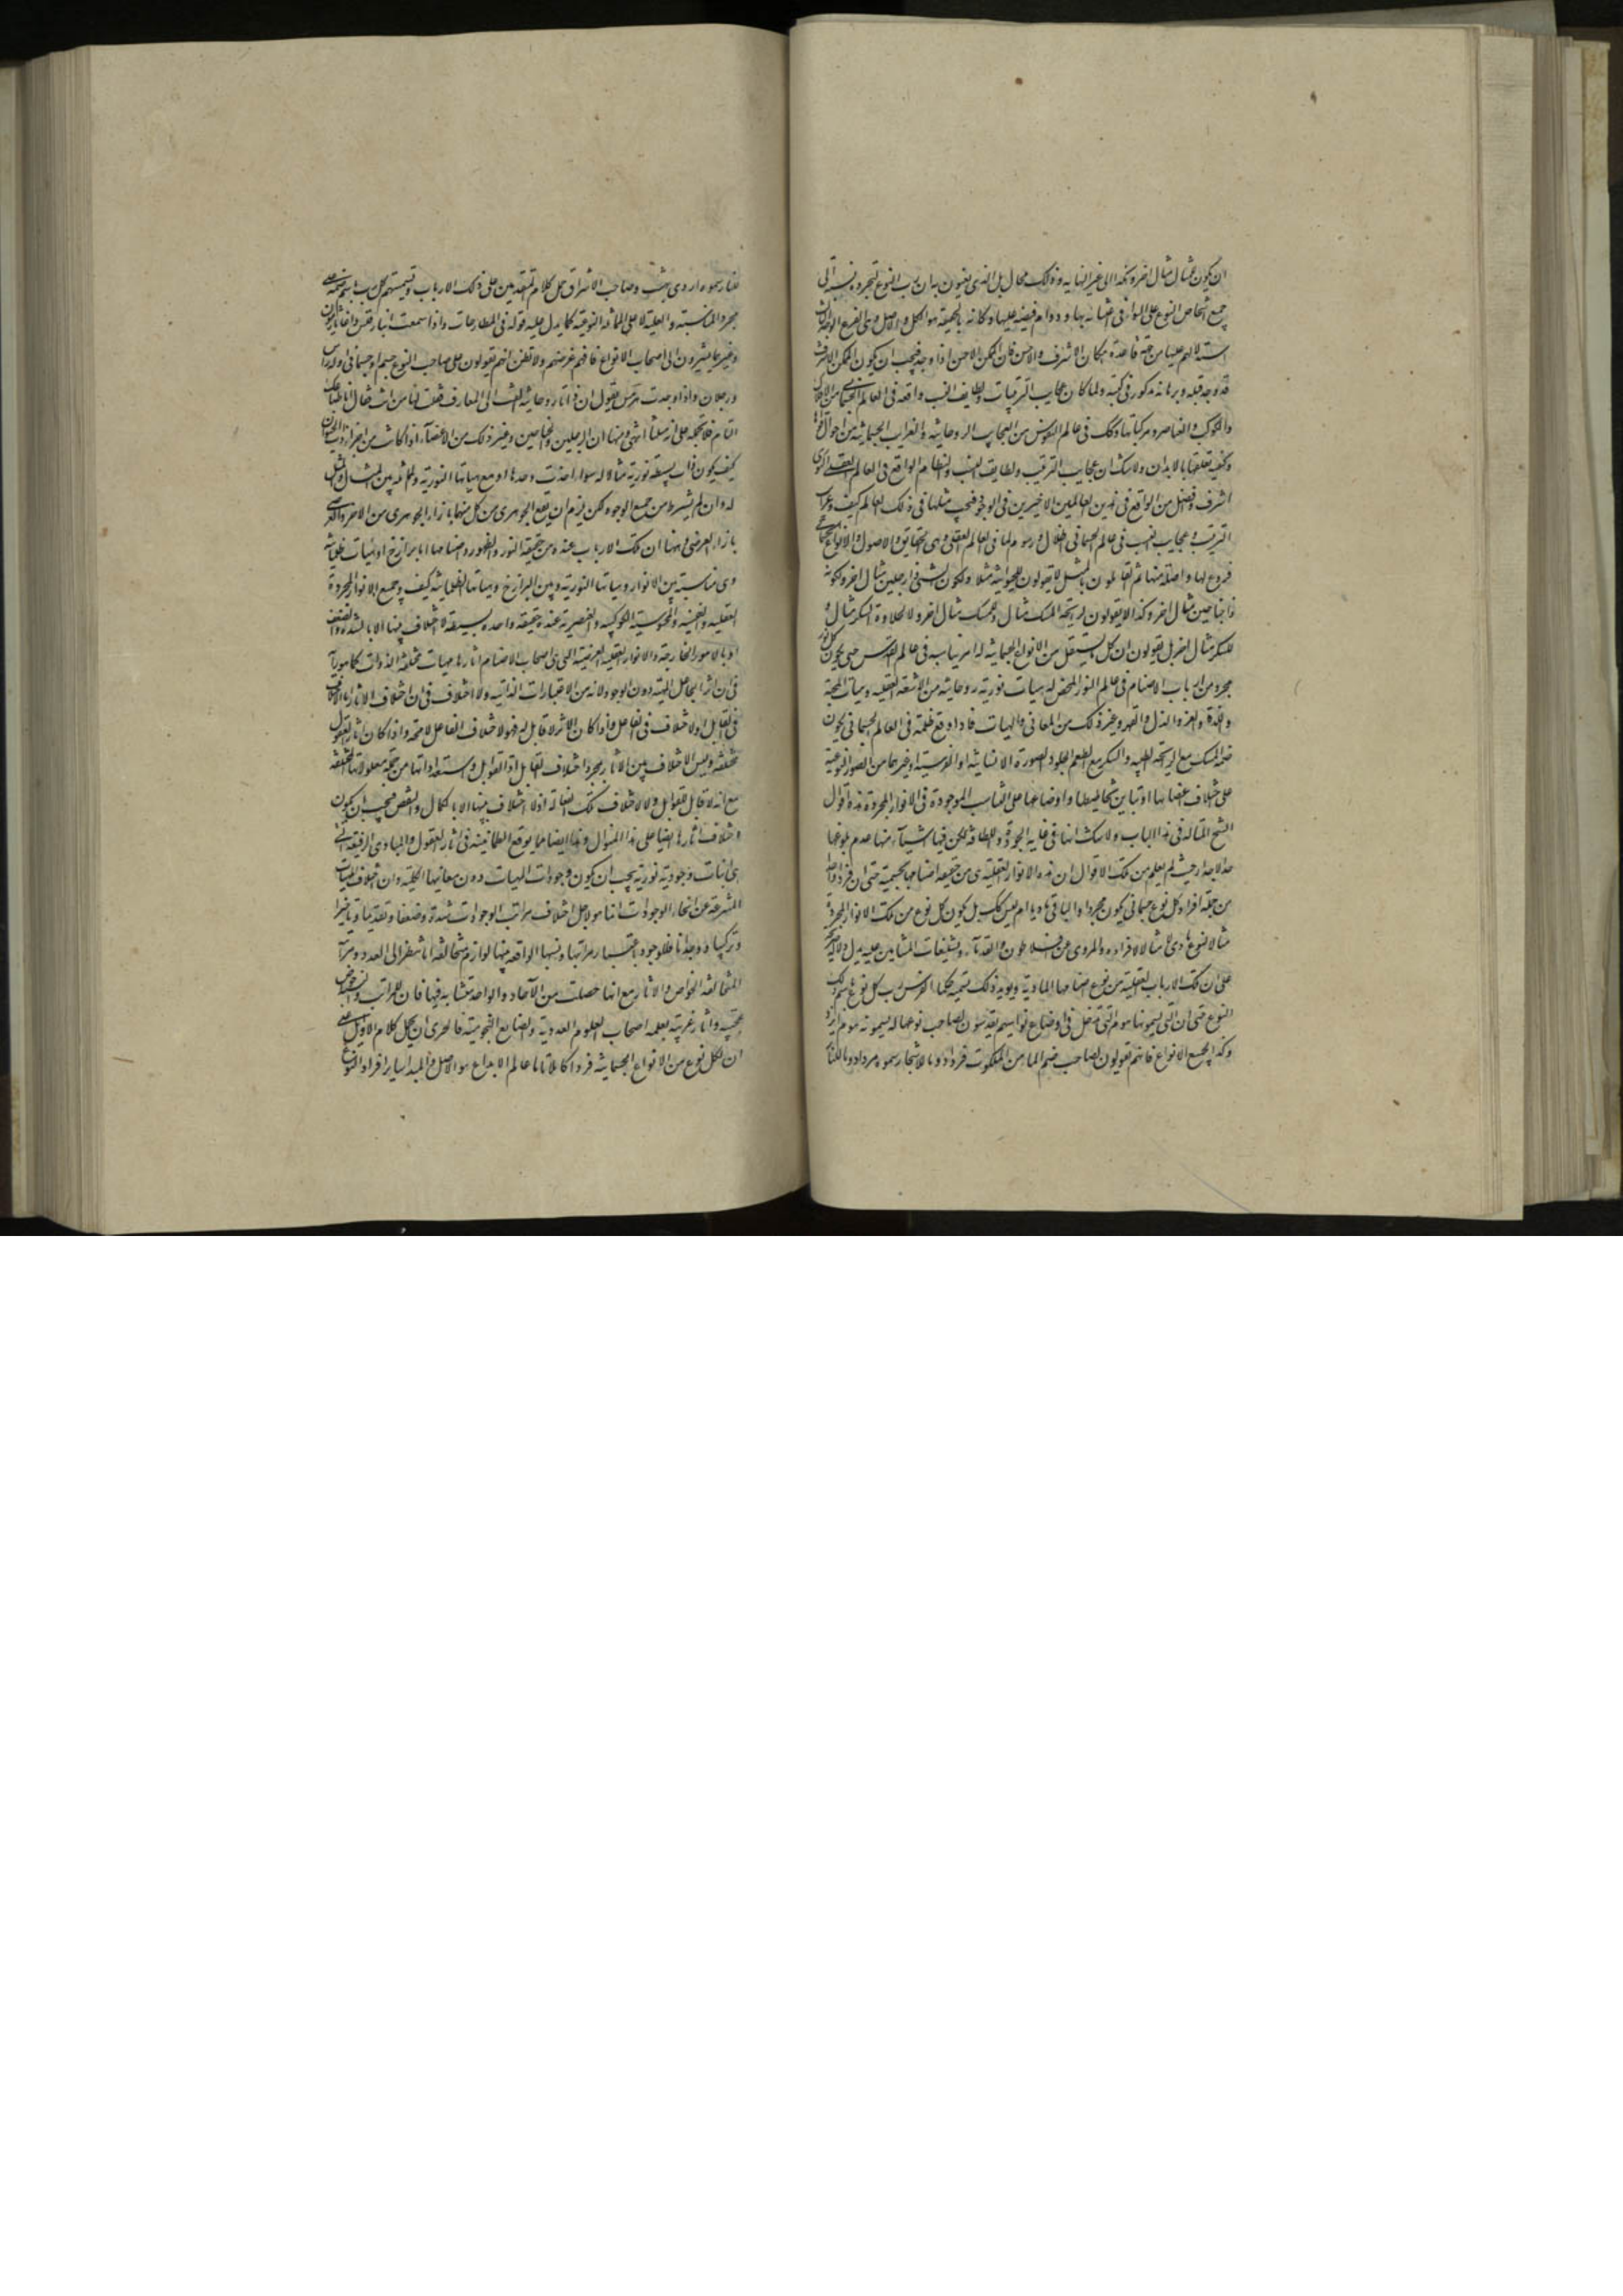 ان يكون للمثال مثال اخر وهكذا الى غير النهاية وذلك محال بل الذى يعنون به ان رب النوع لتجرده نسبته الى
جميع اشخاص النوع على السواء فى اعتنائه بها ودوام فيضه عليها وكانه بالحقيقة هو الكل والاصل وهى الفرع
استدلالهم عليها من جهة قاعدة امكان الاشرف والاخس فان الممكن الاخس اذا وجد فيجب ان يكون الممكن الاشرف
قد وجد قبله وبرهانه مذكور فى كتبه ولما كان عجايب الترتيبات ولطايف النسب واقعة فى العالم الجسمانى من الافلاك
والكواكب والعناصر ومركباتها وكذلك فى عالم النفوس من العجايب الروحانية والغرايب الجسمانية من احوال قواها
وكيفية تعلقها بالابدان ولا شك ان عجايب الترتيب ولطايف النسب والنظام الواقع فى العالم العقلى النورى
اشرف وافضل من الواقع فى هذين العالمين الاخيرين فى الوجود فيجب مثلها فى ذلك العالم كيف وغرايب
الترتيب وعجايب النسب فى عالم الجسمانى اظلال ورسوم لما فى العالم العقلى وهى الحقايق والاصول والانواع الجسمانية
فروع لها واصلة منها ثم القائلون بالمثل لا يقولون للحيوانية مثلا ولكون الشىء ذا رجلين مثال اخر ولكونه
ذا جناحين مثال اخر وكذا لا يقولون لرايحة المسك مثال وللمسك مثال اخر ولا لحلاوة السكر مثال و
للسكر مثال اخر بل يقولون ان كل ما يستقل من الانواع الجسمانية له امر يناسبه فى عالم القدس حتى يكون كل نور
مجرد من ارباب الاصنام فى عالم النور المحض له هيئات نورية روحانية من الاشعة العقلية وهيئات المحبة
واللذة والعز والذل والقهر وغير ذلك من المعانى والهيات فاذا وقع ظله فى العالم الجسمانى يكون
صنمه المسك مع الريحة الطيبة والسكر مع الطعم الحلو او الصورة الانسانية او الفرسية او غيرهما من الصور النوعية
على اختلاف اعضائها وتباين تخاطيطها واوضاعها على التناسب الموجودة فى الانوار المجردة هذه اقوال
الشيخ المتاله فى هذا الباب ولا شك انها فى غاية الجودة واللطافة لكن فيها اشياء منها عدم بلوغها
حد الاجداء حيث لم يعلم من تلك الاقوال ان هذه الانوار العقلية هى من حقيقة اصنامها الجسمية حتى ان فردا واحدا
من جملة افراد كل نوع جسمانى يكون مجردا والباقى ماديا ام ليس كذلك بل يكون كل نوع من تلك الانوار المجردة
مثالا لنوع مادى لا مثالا لافراده والمروى عن افلاطون والقدماء وتشنيعات المشائين عليه يدل دلالة صريحة
على ان تلك الارباب العقلية من نوع اصنامها المادية ويؤيد ذلك تسمية حكماء الفرس رب كل نوع باسم ذلك
النوع حتى ان النبتة التى يسمونها هوم التى تدخل فى اوضاع نواميسهم يقدسون لصاحب نوعها ويسمونه هوم ايزد
وكذا لجميع الانواع فانهم يقولون لصاحب صنم الماء من الملكوت خرداد وما للاشجار سموه مرداد وما للنار
للنار سموه اردى بهشت وصاحب الاشراق حمل كلام المتقدمين على تلك الارباب وتسميتهم كل رب باسم صنمه على
مجرد المناسبة والعلية لا على المماثلة النوعية كما يدل عليه قوله فى المطارحات واذا سمعت انباذقلس واغاثاذيمون
وغيرهما يشيرون الى اصحاب الانواع فافهم غرضهم ولا تظنن انهم يقولون ان صاحب النوع جسم او جسمانى او له راس
ورجلان واذا وجدت هرمس يقول ان ذاتا روحانية القت الى المعارف فقلت لها من انت فقال انا طباعك
التام فلا تحمله على انه مثلنا انتهى ومنها ان الرجلين والجناحين وغير ذلك من الاعضاء اذا كانت من اجزاء ذات الحيوان
كيف يكون ذات بسيطة نورية مثالا له سواء اخذت وحدها او مع هيئاتها النورية والمماثلة بين المثال والممثل
له وان لم يشترط من جميع الوجوه لكن يلزم ان يقع الجوهرى من كل منهما بازاء الجوهرى من الاخر والعرضى
بازاء العرضى ومنها ان تلك الارباب عنده من حقيقة النور والظهور واصنامها اما برازخ او هيئات ظلمانية
واى مناسبة بين الانوار وهيئاتها النورية وبين البرازخ وهيئاتها الظلمانية كيف وجميع الانوار المجردة
العقلية والنفسية والمحسوسة الكوكبية والعنصرية عنده حقيقة واحدة بسيطة لا اختلاف بينها الا بالشدة والضعف
او بالامور الخارجة والانوار العقلية العرضية التى هى اصحاب الاصنام اثارها هيئات مختلفة الذوات كما هو رأيه
فى ان اثر الجاعل الماهية دون الوجود لانه من الاعتبارات الذاتية ولا اختلاف فى ان اختلاف الاثار اما لاختلاف
فى القابل او لاختلاف فى الفاعل واذا كان الاثر لا قابل له فهو لاختلاف الفاعل لا محة واذا كان اثار العقول
مختلفة وليس الاختلاف بين الاثار بمجرد اختلاف القابل اذ القوابل واستعداداتها من جملة معلولاتها المختلفة
مع انه لا قابل للقوابل ولا لاختلاف تلك الفعالة اذ لا اختلاف بينها الا بالكمال والنقص فيجب ان يكون
اختلاف اثارها ايضا على هذا المنوال وهذا ايضا مما يوقع الطمانينة فى ان اثار العقول والمبادى الرفيعة التى
هى انيات وجودية نورية يجب ان يكون وجودات الهيات دون معانيها الكلية وان اختلاف الماهيات
المنتزعة عن انحاء الوجودات انما هو لاجل اختلاف مراتب الوجودات شدة وضعفا وتقدما وتاخرا
وتركيبا ووحدانا فللوجود باعتبار مراتبها ونسبها الواقعة بينها لوازم متخالفة اما تنظر الى العدد ومراتبه
المتخالفة الخواص والاثار مع انها حصلت من الآحاد والواحد متشابه فيها فان للمراتب ونسبها خواص
عجيبة واثار غريبة يعلمه اصحاب العلوم العددية والصنايع النجومية فالحرى ان يحمل كلام الاوايل على
ان لكل نوع من الانواع الجسمانية فردا كاملا تاما عالم الابداع هو الاصل والمبدا وساير افراد النوع